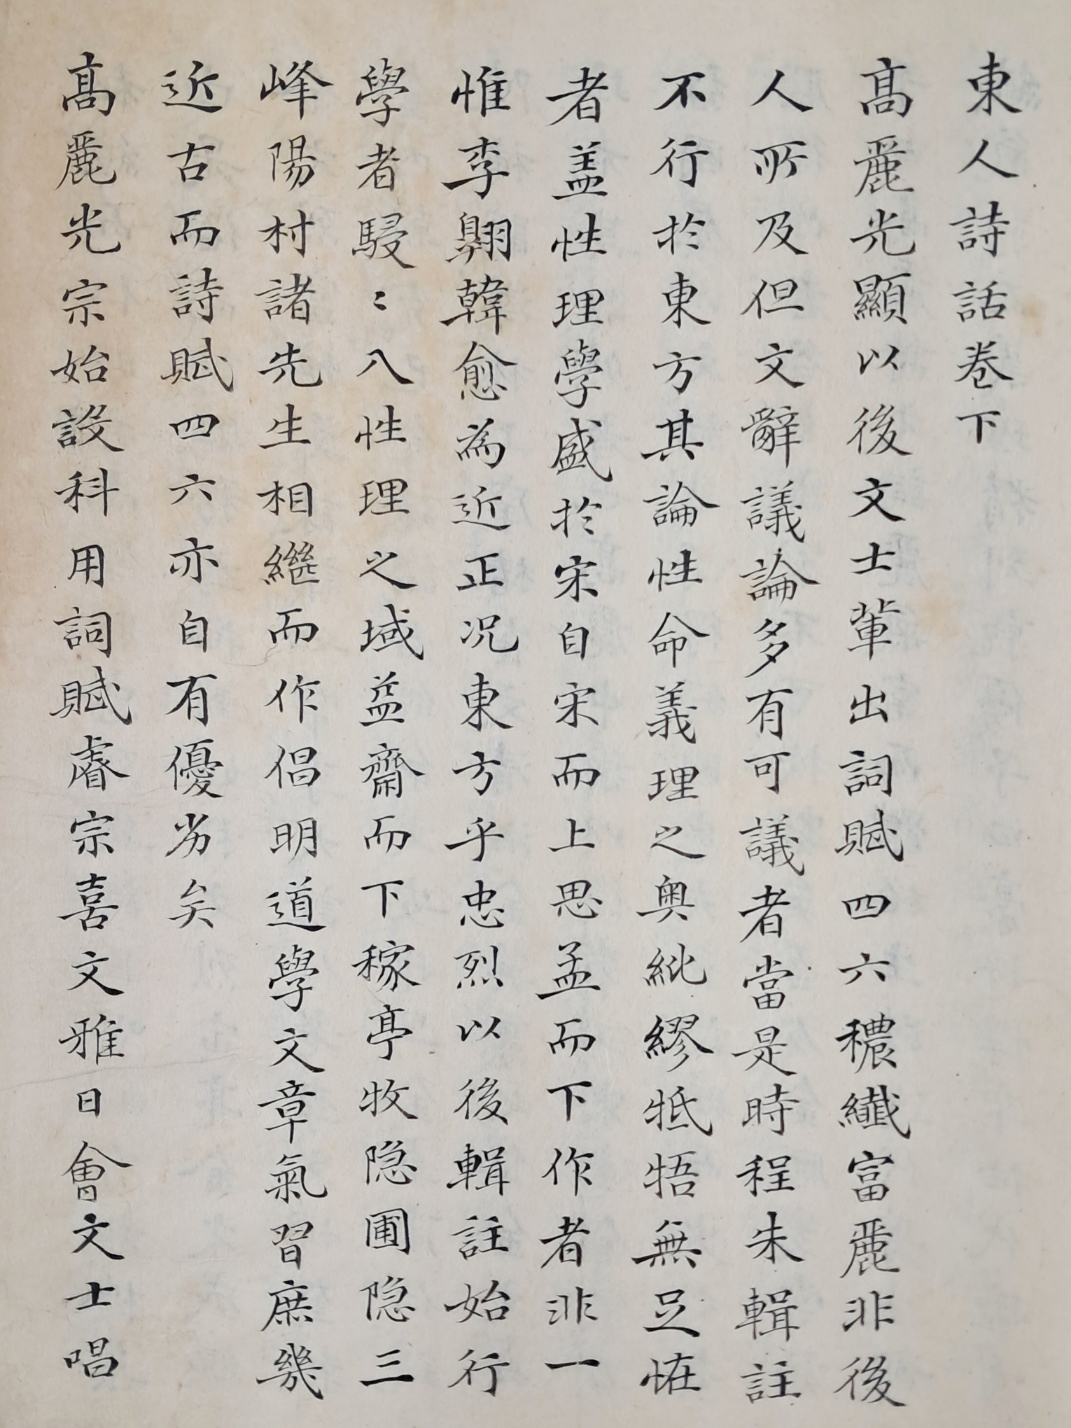 東人詩話卷下
高麗光顯以後文士軰出詞賦四六穠纖富麗非後
人所及但文辭議論多有可議者當是時程朱輯註
不行於東方其論性命義理之奥紕繆牴牾無足恠
者盖性理學盛於宋自宋而上思孟而下作者非一
惟李翺韓愈為近正况東方乎忠烈以後輯註始行
學者駸〻八性理之域益齋而下稼亭牧隐圃隐三
峰陽村諸先生相繼而作倡明道學文章氣習庶幾
近古而詩賦四六亦自有優劣矣
髙麗光宗始設科用詞賦睿宗喜文雅日會文士唱